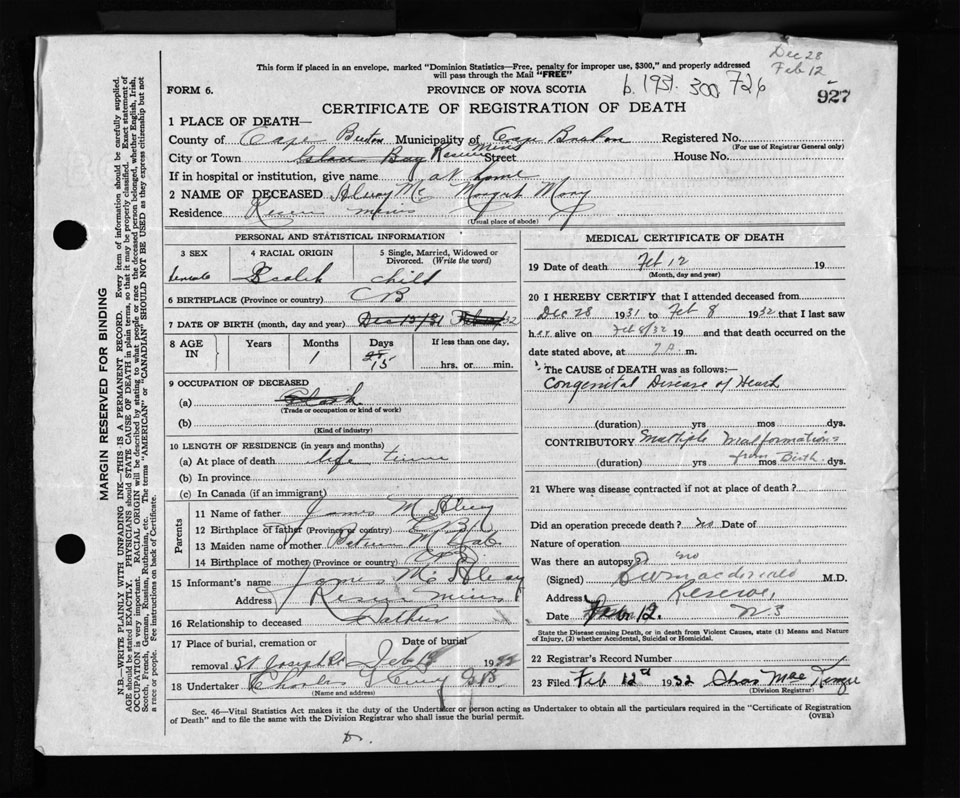 Dec 28
Feb 12
This form if placed in an envelope, marked "Dominion Statistics—Free, penalty for improper use, $300," and properly addressed
will pass through the Mail "FREE"
FORM 6.
PROVINCE OF NOVA SCOTIA
b. 1931. 300 726
927
CERTIFICATE OF REGISTRATION OF DEATH
1 PLACE OF DEATH—
County of Cape Breton Municipality of Cape Breton Registered No.
(For use of Registrar General only)
City or Town Glace Bay Reserve Mines Street House No.
If in hospital or institution, give name at home
2 NAME OF DECEASED Mc Margret Mary
Residence Reserve mines
(Usual place of abode)
PERSONAL AND STATISTICAL INFORMATION
3 SEX
4 RACIAL ORIGIN
5 Single, Married, Widowed or Divorced. (Write the word)
female Scotch child
6 BIRTHPLACE (Province or country) CB
7 DATE OF BIRTH (month, day and year) Dec /31 32
8 AGE IN
Years
Months
Days
If less than one day,
1 15
hrs. or min.
9 OCCUPATION OF DECEASED
(a)
(Trade or occupation or kind of work)
(b)
(Kind of industry)
10 LENGTH OF RESIDENCE (in years and months)
(a) At place of death life time
(b) In province
(c) In Canada (if an immigrant)
Parents
11 Name of father James Mc
12 Birthplace of father (Province or country) CB
13 Maiden name of mother
14 Birthplace of mother (Province or country) CB
15 Informant's name James Mc
Address Reserve mines
16 Relationship to deceased Father
17 Place of burial, cremation or removal St Josephs
Date of burial Feb 1932
18 Undertaker Charles GB
(Name and address)
MEDICAL CERTIFICATE OF DEATH
19 Date of death Feb 12 19
(Month, day and year)
20 I HEREBY CERTIFY that I attended deceased from
Dec 28 1931 to Feb 8 1932 that I last saw
her alive on Feb 8/32 19 and that death occurred on
date stated above, at 7 P. m.
The CAUSE OF DEATH was as follows:—
Congenital Disease of Heart
(duration) yrs mos dys.
CONTRIBUTORY Multiple Malformations
(duration) yrs from mos Birth. dys.
21 Where was disease contracted if not at place of death?
Did an operation precede death? no Date of
Nature of operation
Was there an autopsy? no
(Signed) Macdonald M.D.
Address Reserve,
Date Feb 12. N.S
State the Disease causing Death, or in death from Violent Causes, state (1) Means and Nature
of Injury, (2) whether Accidental, Suicidal or Homicidal.
22 Registrar's Record Number
23 Filed Feb 12th 1932 Chas MacKenzie
(Division Registrar)
Sec. 46—Vital Statistics Act makes it the duty of the Undertaker or person acting as Undertaker to obtain all the particulars required in the "Certificate of Registration
of Death" and to file the same with the Division Registrar who shall issue the burial permit.
(OVER)
MARGIN RESERVED FOR BINDING
N.B.—WRITE PLAINLY WITH UNFADING INK—THIS IS A PERMANENT RECORD. Every item of information should be carefully supplied.
AGE should be stated EXACTLY. PHYSICIANS should STATE CAUSE OF DEATH in plain terms, so that it may be properly classified. Exact statement of
OCCUPATION is very important. RACIAL ORIGIN will be described by stating to what people or race the deceased person belonged, whether English, Irish,
Scotch, French, German, Russian, Ruthenian, etc. The terms "AMERICAN" or "CANADIAN" SHOULD NOT BE USED as they express citizenship but not
a race or people. See instructions on back of Certificate.